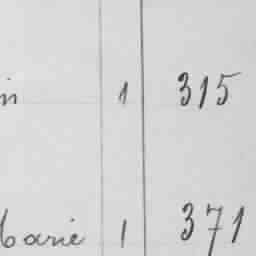 in 1 315
barie 1 371